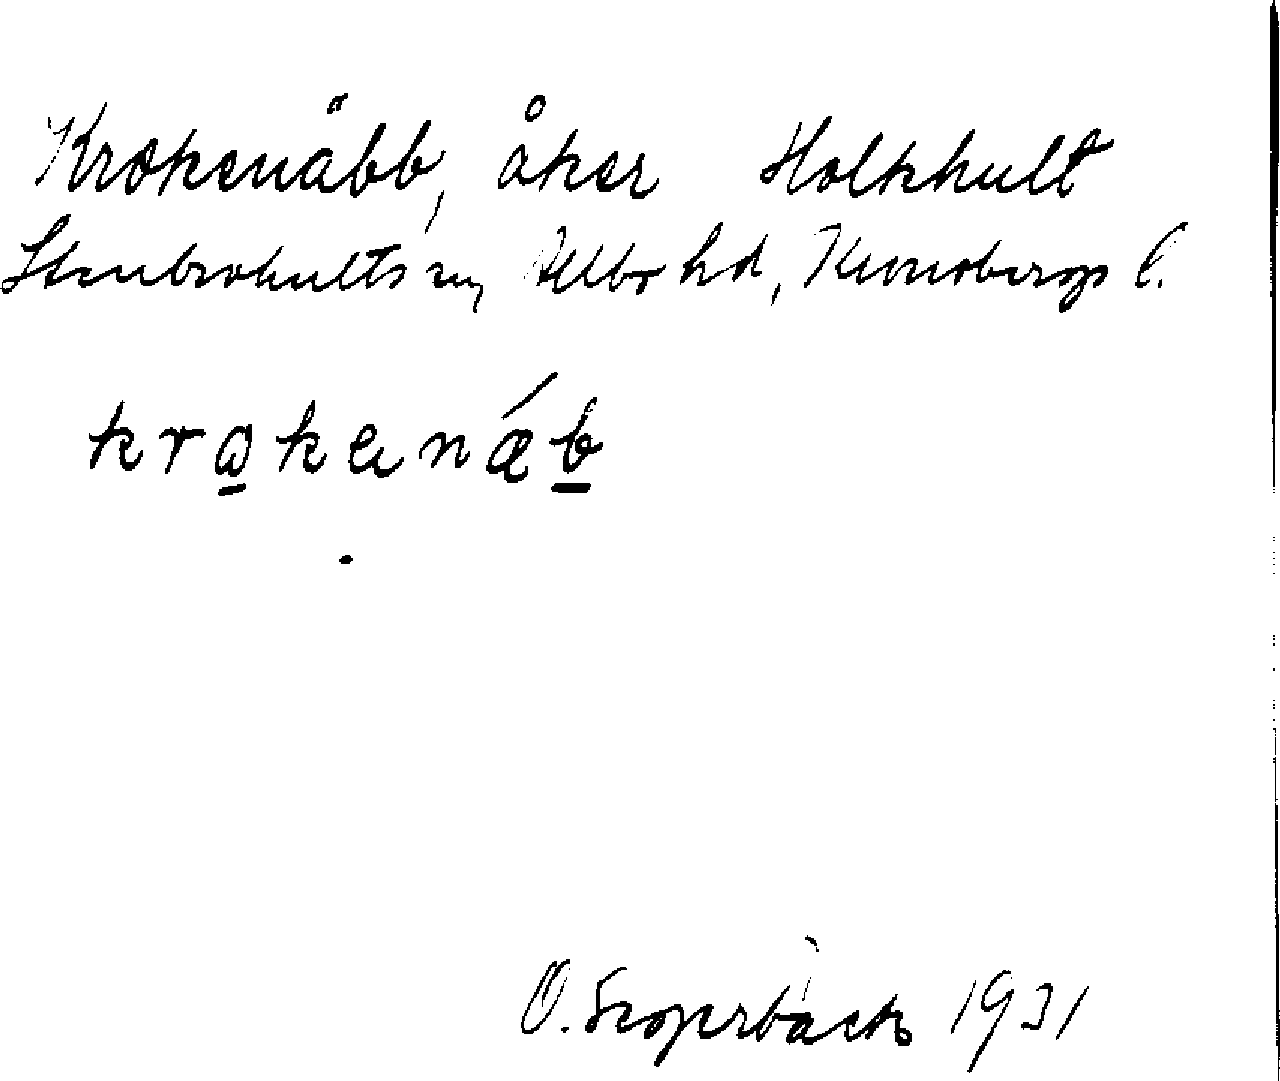 Krokenäbb, åker Holkhult
Stenbrohults sn, Allbo hd, Kronobergs l.
kro̲kenǽb̲
O. 1931